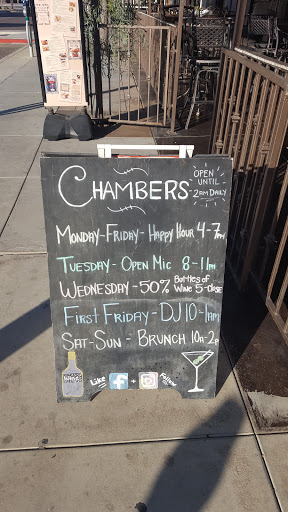 CHAMBERS
OPEN
UNTIL
2AM DAILY
MONDAY-FRIDAY-HAPPY HOUR 4-7PM
TUESDAY-OPEN MIC 8-11PM
WEDNESDAY-50% Bottles of
WINE 5-Close
FIRST FRIDAY-DJ 10-1AM
SAT-SUN-BRUNCH 10A-2P
Like
f + 
Follow